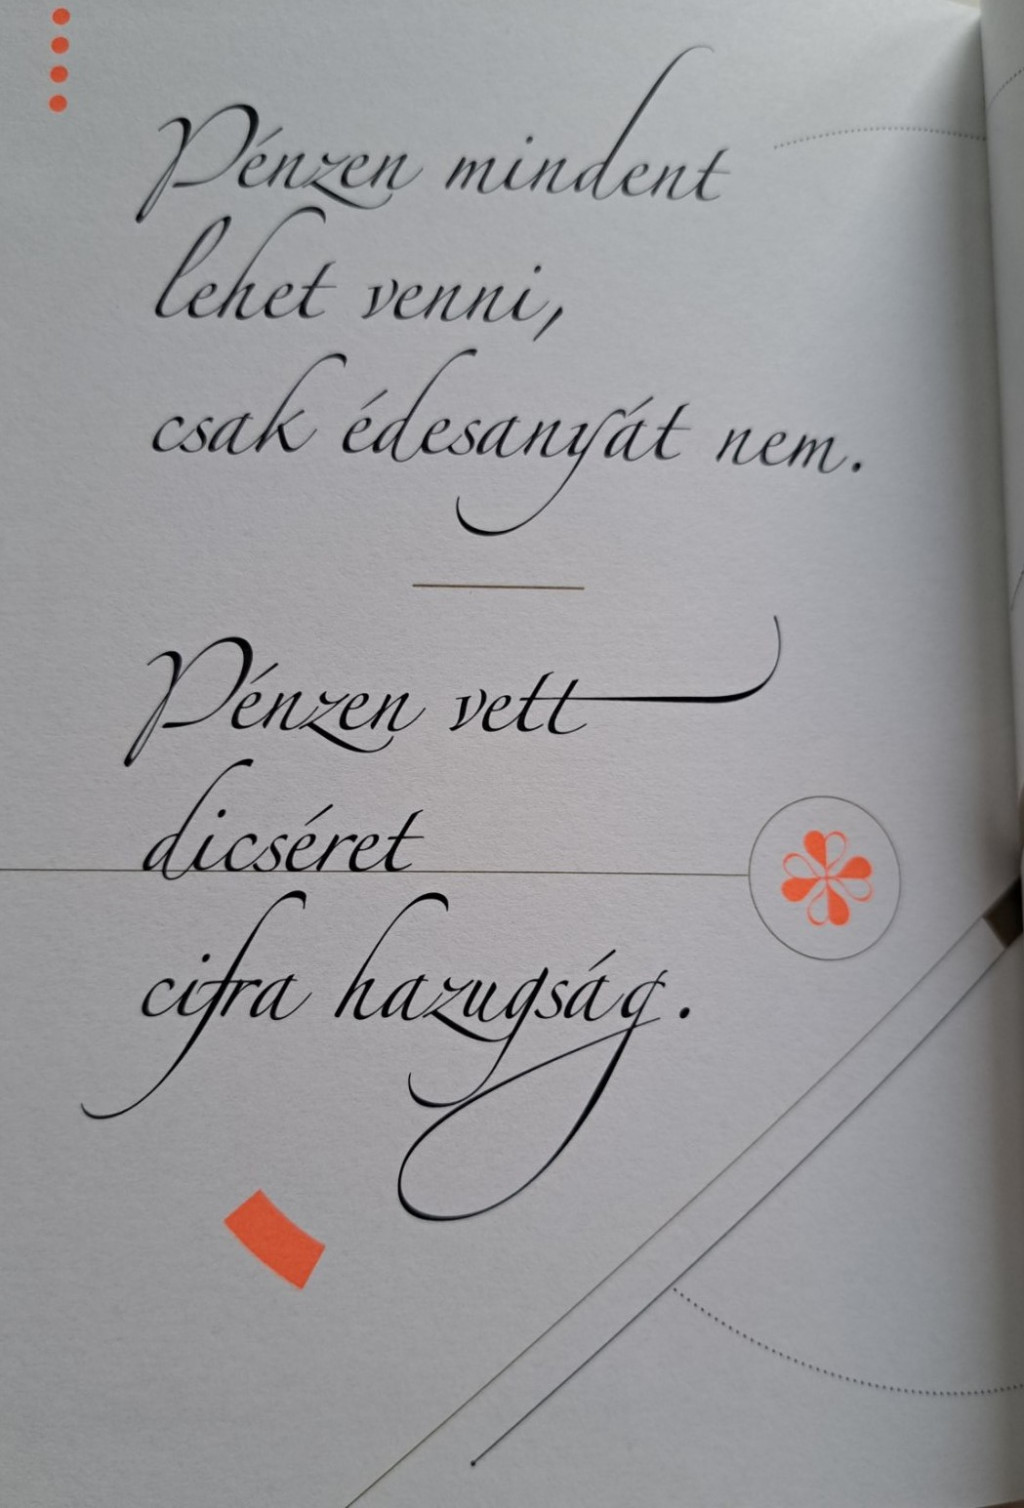 Pénzen mindent
lehet venni,
csak édesanyát nem.
Pénzen vett
dicséret
cifra hazugság.